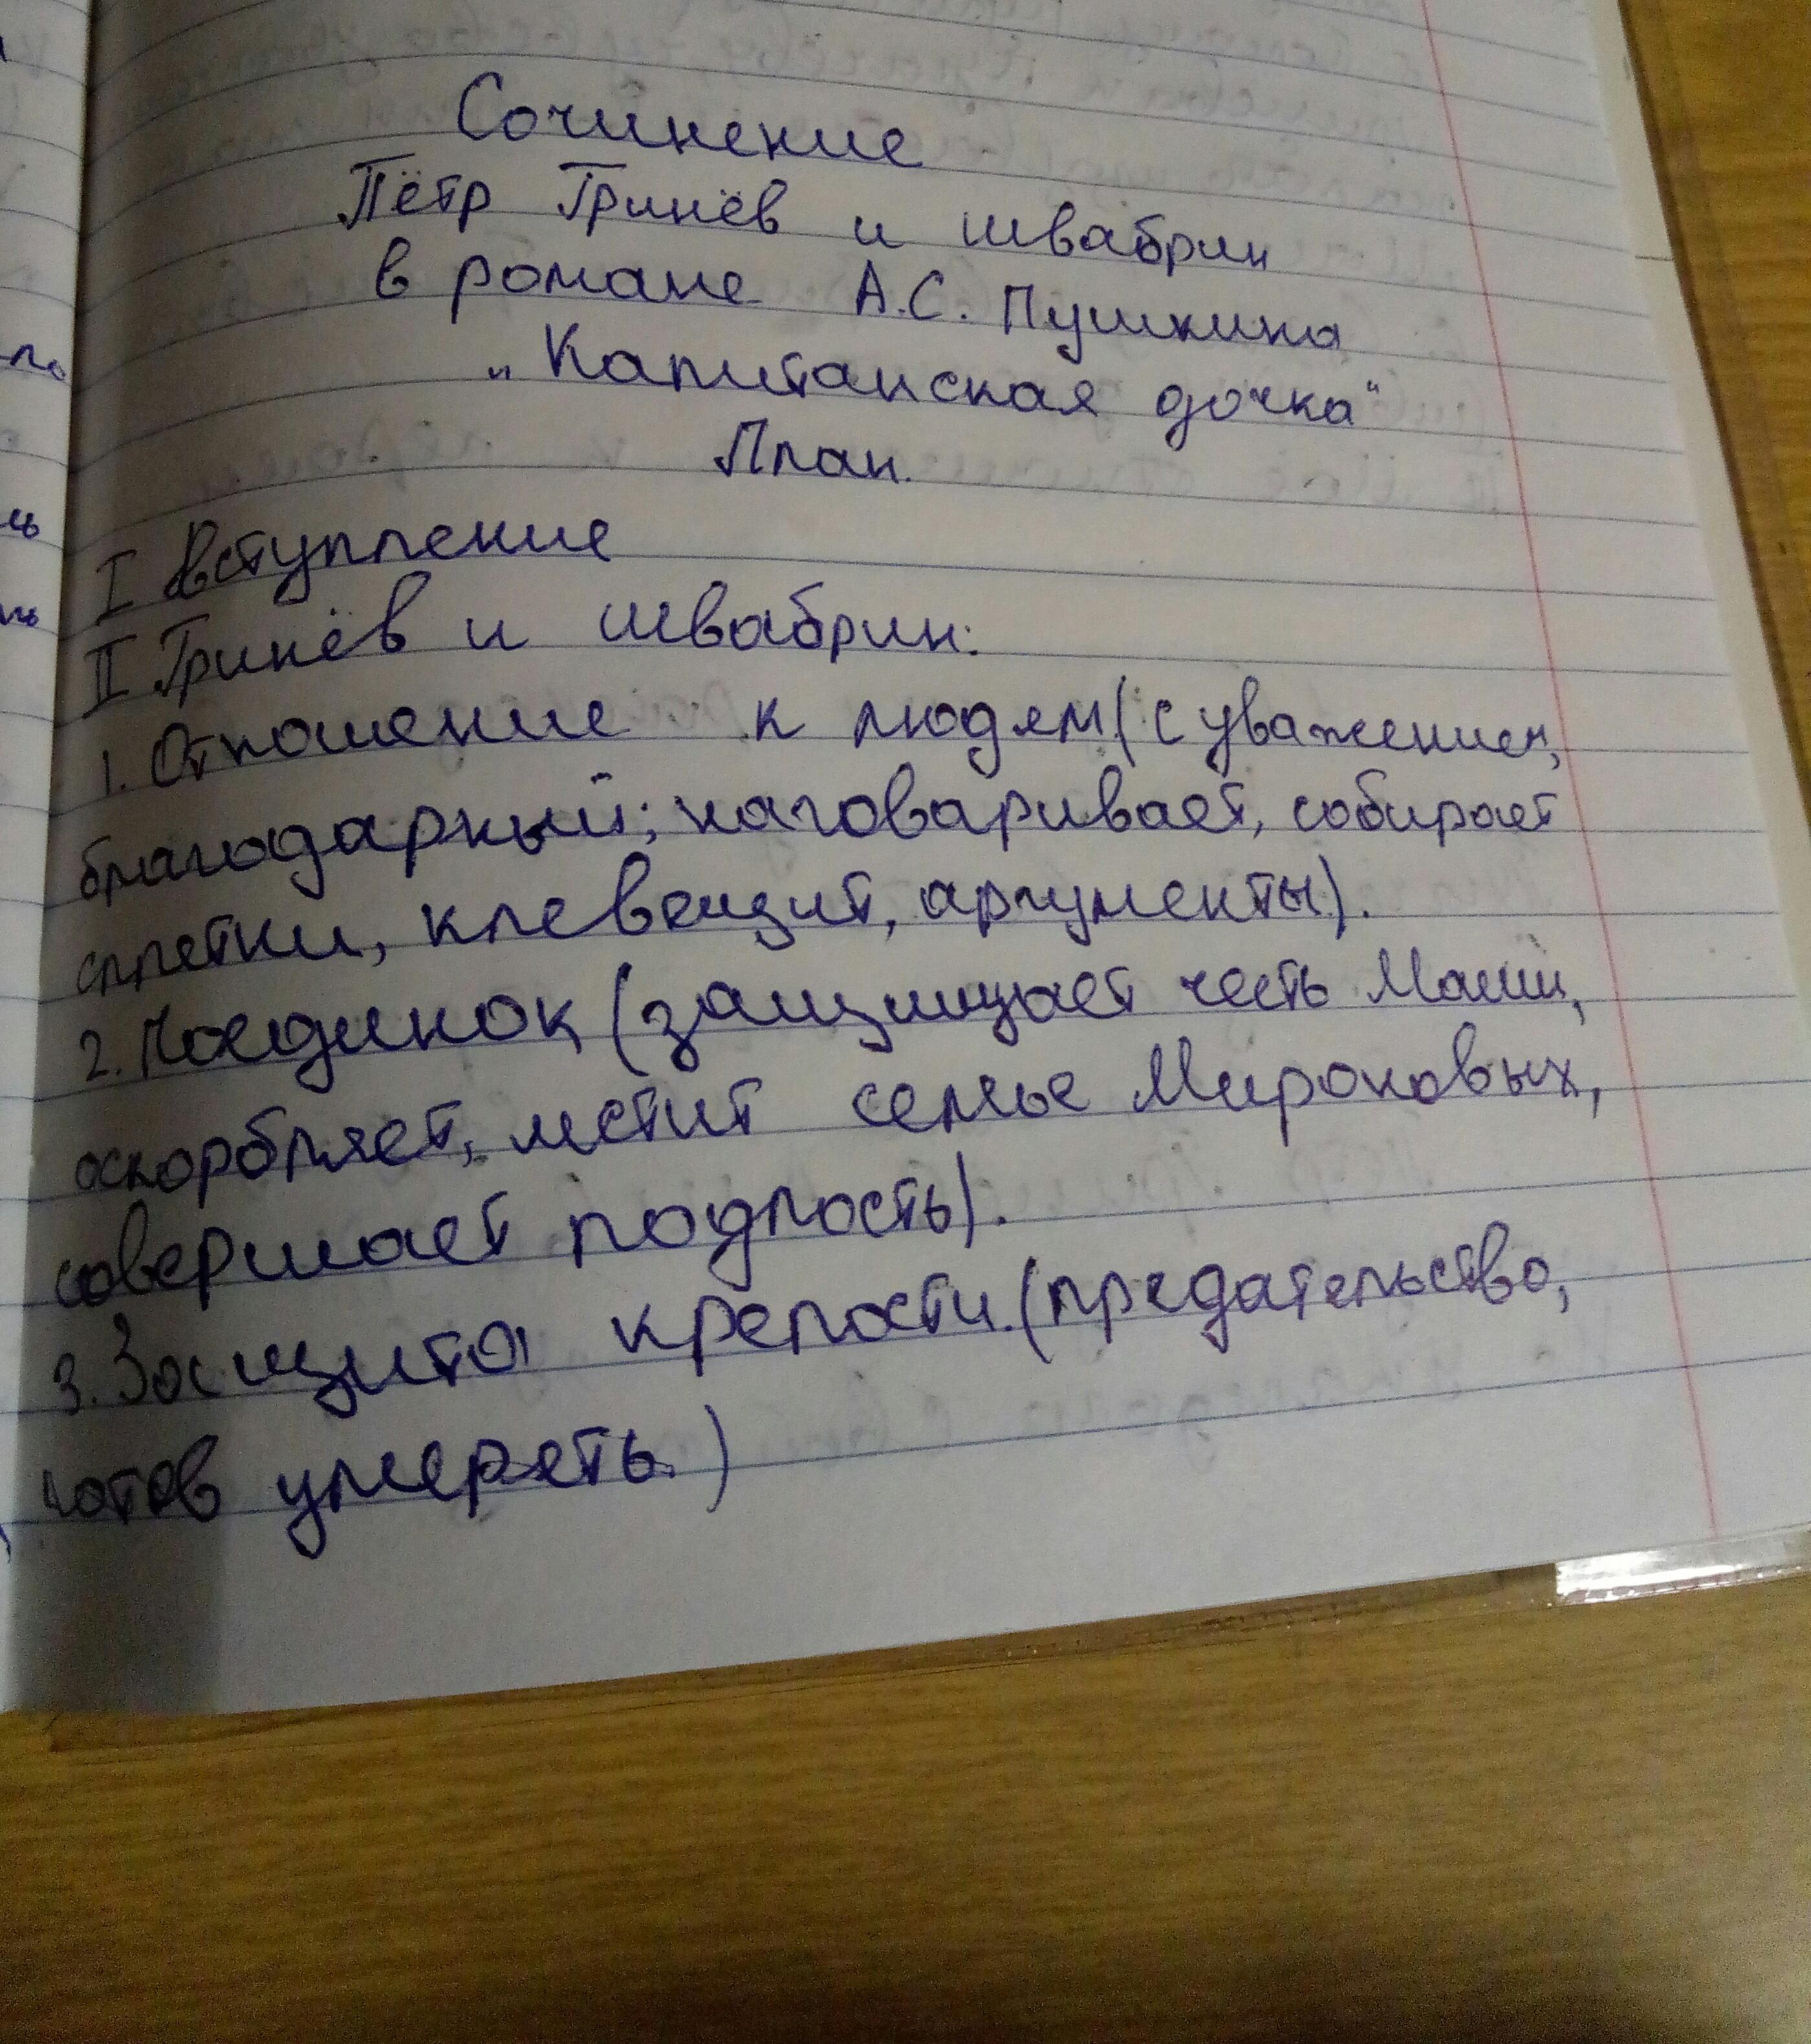 Сочинение
Пётр Гринёв и швабрин
в романе А.С. Пушкина
„Капитанская дочка“
План.
I Вступление
II Гринёв и швабрин:
1. Отношение к людям (с уважением,
благодарный; наговаривает, собирает
сплетни, клевещит, аргументы).
2. Поединок (защищает честь Маши,
оскорбляет, мстит семье Мироновых,
совершает подлость).
3. Защита крепости. (предательство,
готов умереть.)